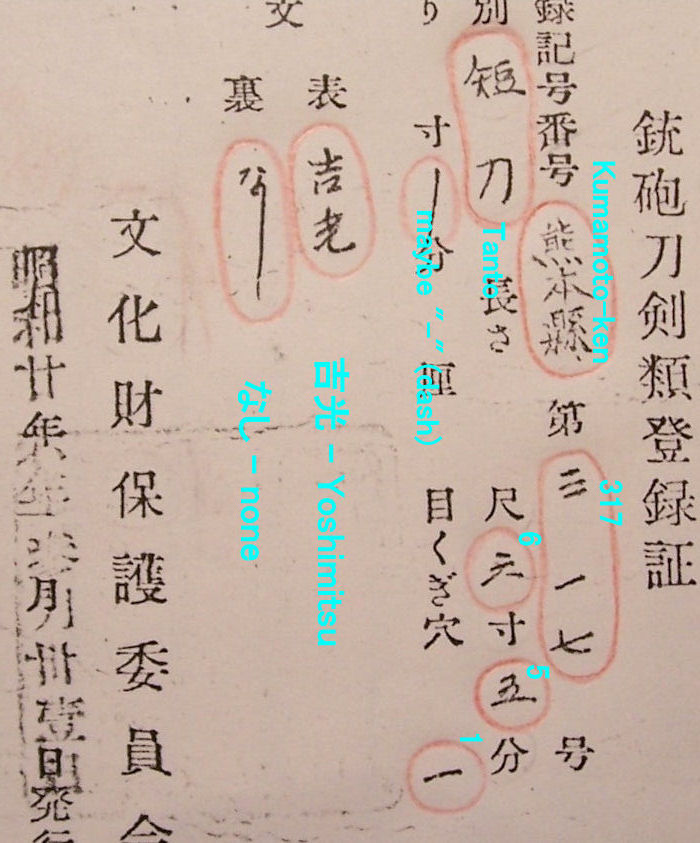 銃砲刀剣類登録証
録記号番号 熊本縣 第三一七号
別 短刀 長さ 尺六寸五分
り 寸 分 厘 目くぎ穴 一
文
表 吉光
裏 なし
文化財保護委員会
昭和廿六年 月卅壹日発行
Kumamoto-ken
317
Tanto
6
5
maybe “-” (dash)
1
吉光 - Yoshimitsu
なし - none